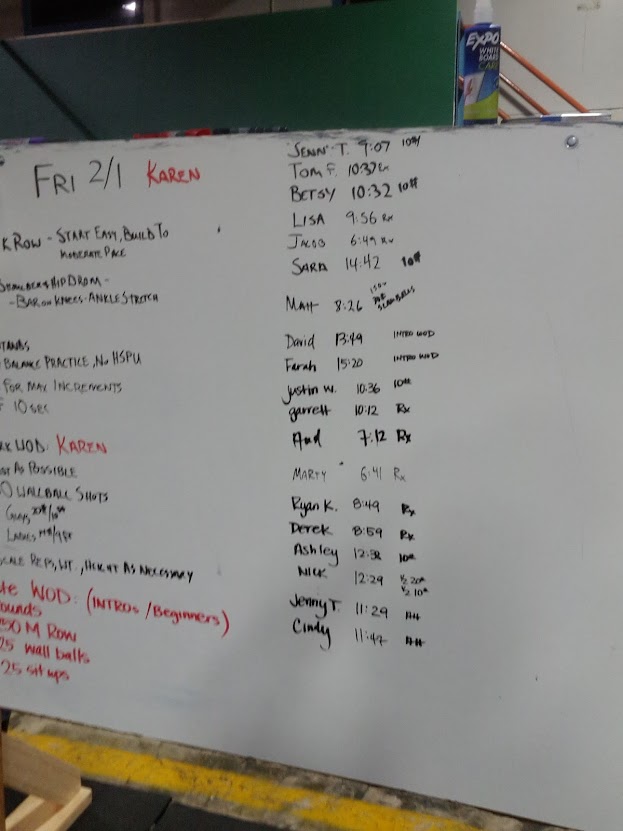 EXPO
WHITE
BOARD
CARE
FRI 2/1 KAREN
K ROW - START EASY, BUILD TO
MODERATE PACE
& HIP DROM -
- BAR ON KNEES - ANKLE STRETCH
BALANCE PRACTICE, NO HSPU
FOR MAX INCREMENTS
10 SEC
WOD: KAREN
AS POSSIBLE
0 WALLBALL SHOTS
GUYS 20#/10ft
LADIES
SCALE REPS, WT., HEIGHT AS NECESSARY
WOD: (INTROS/Beginners)
ounds
50 M Row
25 wall balls
25 sit ups
JENN T. 9:07 10#
TOM F. 10:37 Rx
BETSY 10:32 10#
LISA 9:56 Rx
JACOB 6:49 Rx
SARA 14:42 10#
MATT 8:26 150 SLAM BALLS
David 13:49 INTRO WOD
Farah 15:20 INTRO WOD
Justin W. 10:36 10#
garrett 10:12 Rx
7:12 Rx
MARTY 6:41 Rx
Ryan K. 8:49 Rx
Derek 8:59 Rx
Ashley 12:38 10#
NICK 12:29 1/2 20#
1/2 10#
Jenny T. 11:29
Cindy 11:47